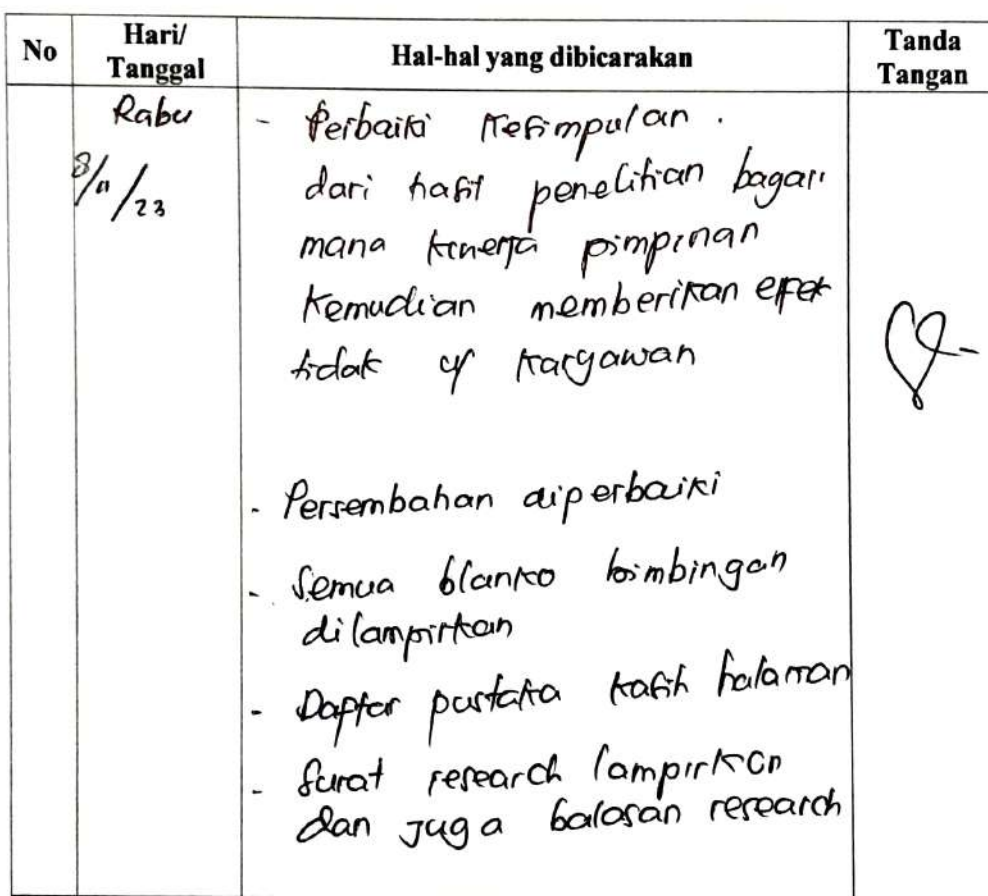 No Hari/ Tanggal Hal-hal yang dibicarakan Tanda Tangan
Rabu
8/11/23
- Perbaiki Kesimpulan.
dari hasil penelitian bagai
mana kinerja pimpinan
kemudian memberikan efek
tidak karyawan
- Persembahan diperbaiki
- Semua blanko bimbingan
dilampirkan
- Daftar pustaka kasih halaman
- Surat research lampirkan
dan juga balasan research